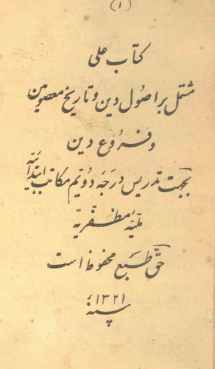 (١)
کتاب علی
مشتمل بر اصول دین و تاریخ معصومین
و فروع دین
بجهت تدریس درجه دویم مکاتب ابتدائیه
ملیهٔ مظفریه
حق طبع محفوظ است
سنه ١٣٢١